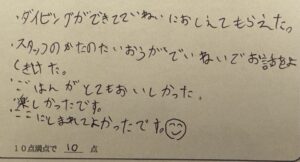 ・ダイビングができてていねいにおしえてもらえたっ
・スタッフのかたのたいおうがていねいでお話をよ
くきけた。
・ごはんがとてもおいしかった。
・楽しかったです。
・ここにとまれてよかったです。
10点満点で 10 点